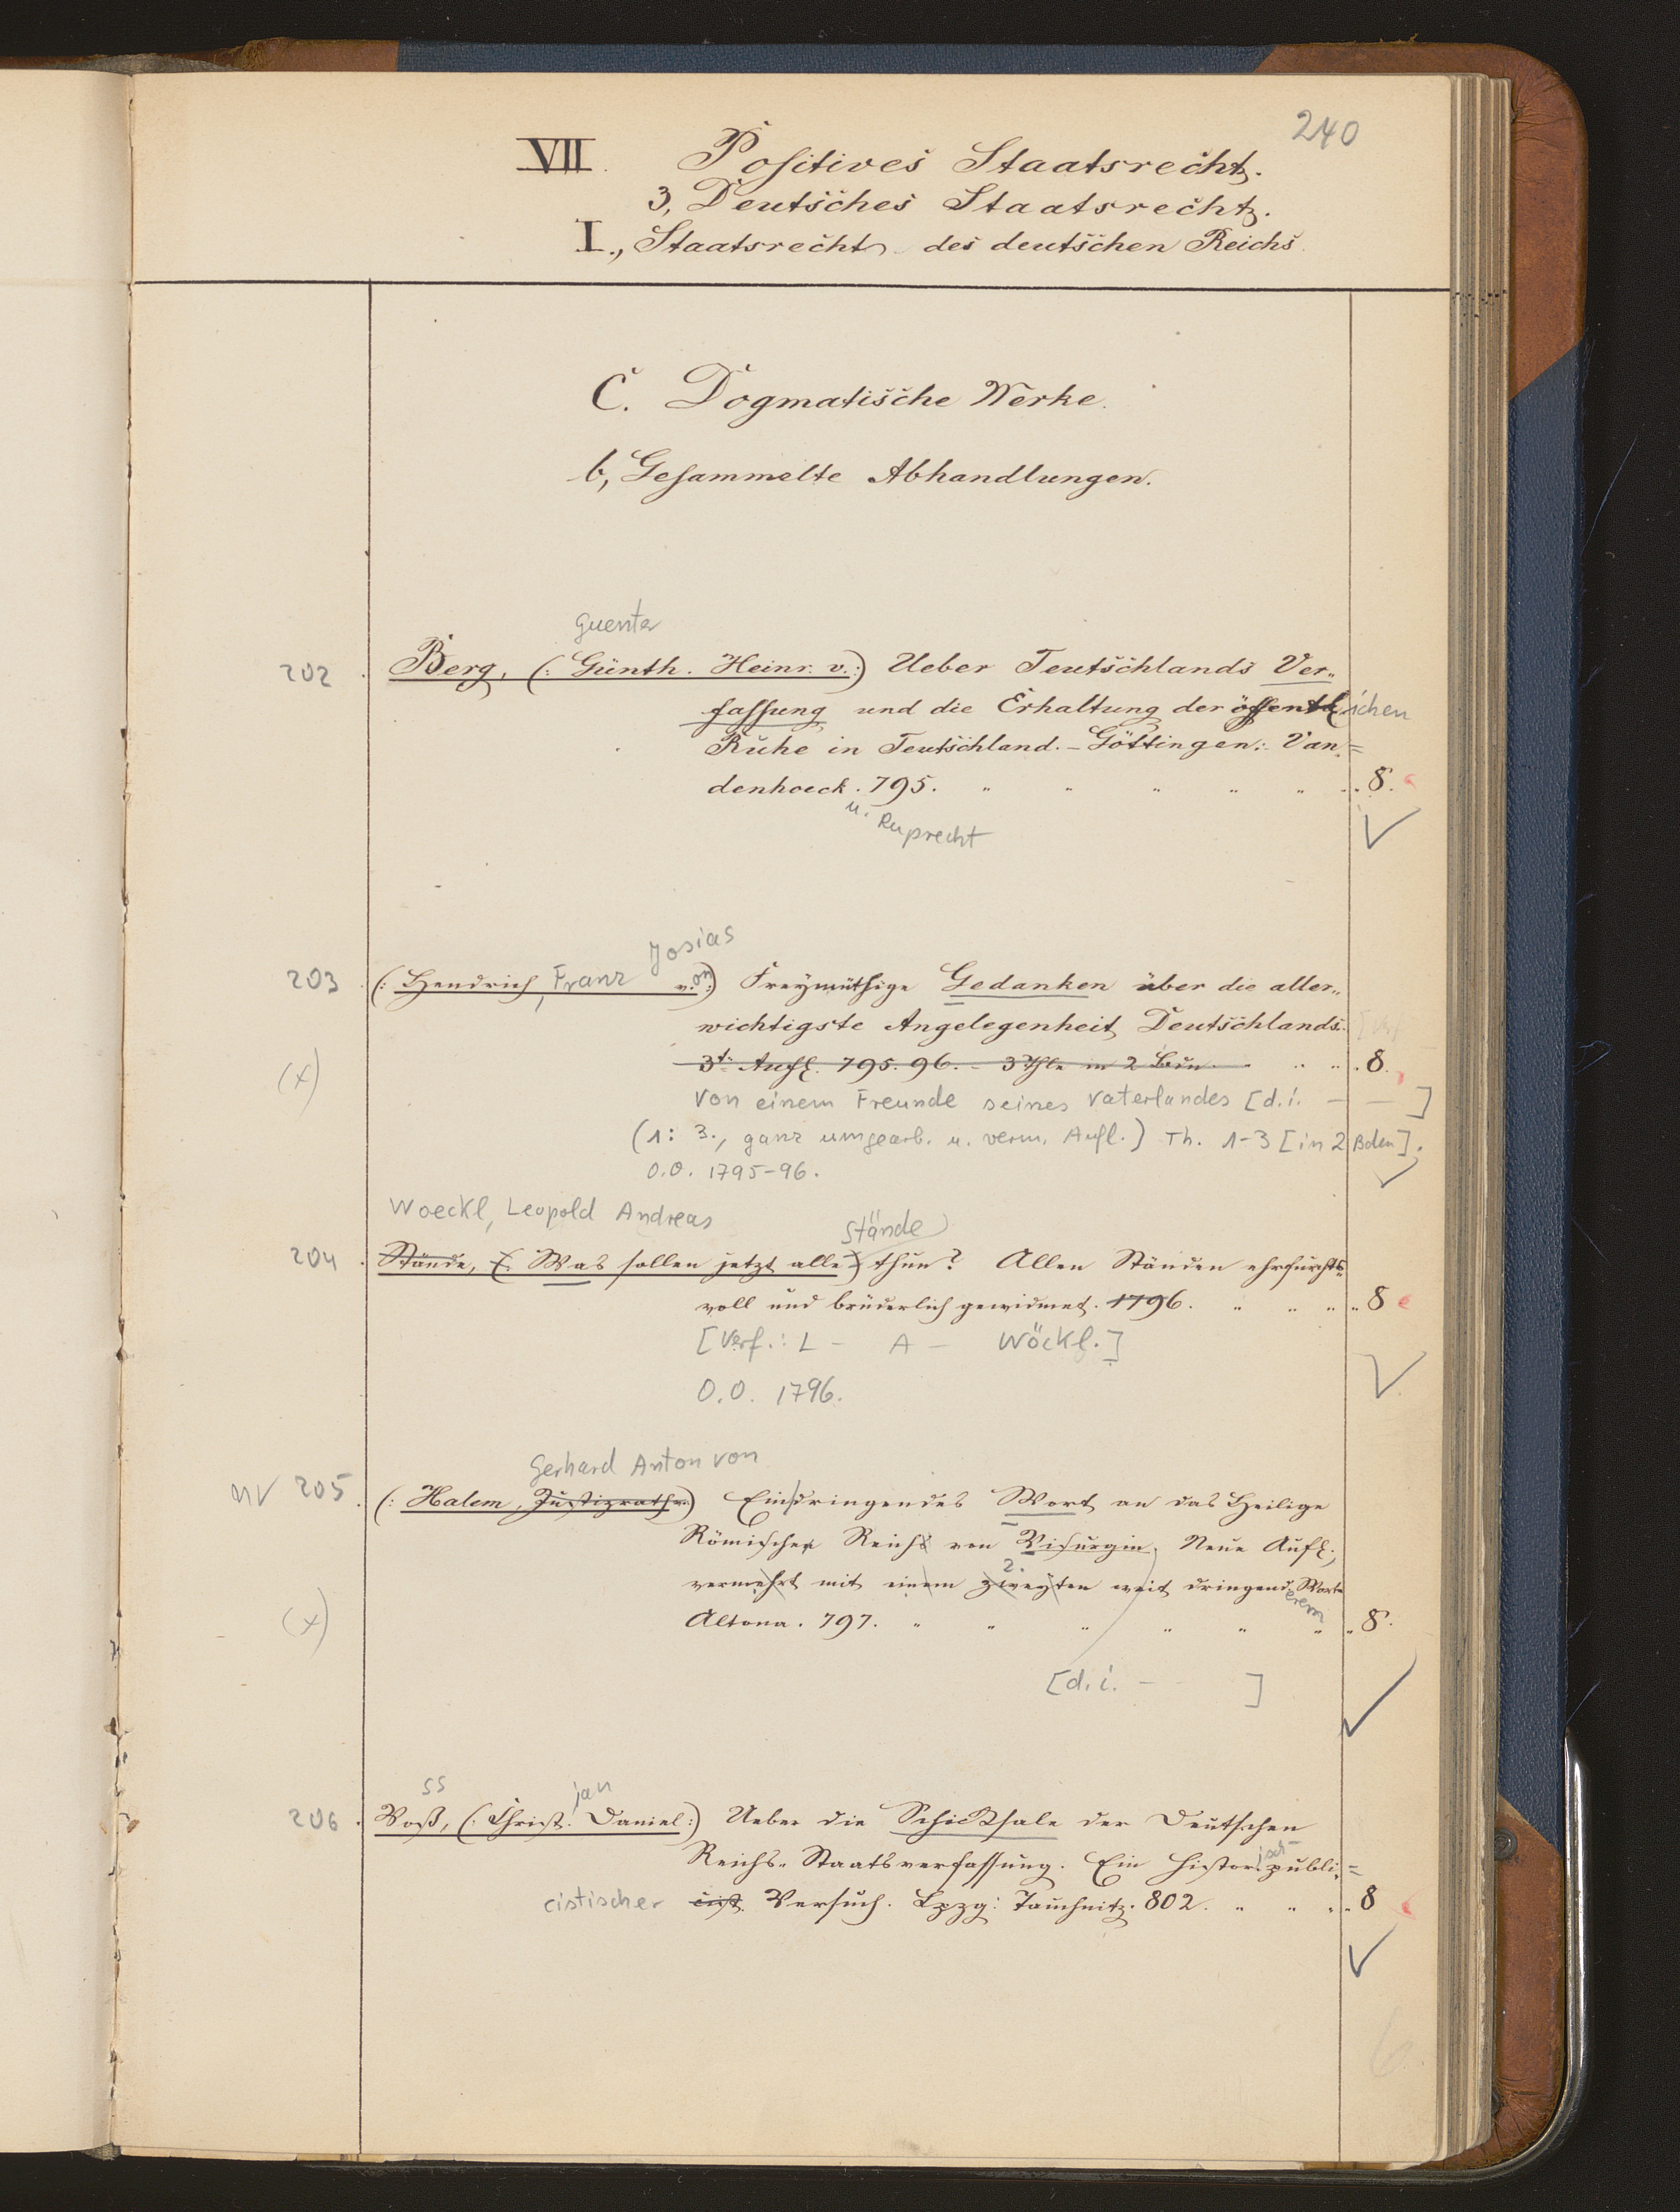 240
VII. Positives Staatsrecht.
3, Deutsches Staatsrecht.
I., Staatsrecht des deutschen Reichs.
C. Dogmatische Werke.
b, Gesammelte Abhandlungen.
Guenter
202. Berg, (: Günth. Heinr. v.:) Ueber Teutschlands Ver-
fassung und die Erhaltung der öffentlichen
Ruhe in Teutschland. - Göttingen: Van=
denhoeck. 795. " " " " " " 8.
u. Ruprecht
Josias
203. (: Hendrich, Franz von :) Freymüthige Gedanken über die aller-
wichtigste Angelegenheit Deutschlands.
3te Aufl. 795. 96. - 3 Thle in 2 Bdn. " " 8.
(x)
von einem Freunde seines Vaterlandes [d.i. — — ]
(1: 3., ganz umgearb. u. verm. Aufl.) Th. 1-3 [in 2 Bden].
O.O. 1795-96.
Woeckl, Leopold Andreas
Stände
204. Stände, (: Was sollen jetzt alle :) thun? Allen Ständen ehrfurchts-
voll und brüderlich gewidmet. 1796. " " " " 8
[Verf.: L — A — Wöckl.]
O.O. 1796.
Gerhard Anton von
NV 205. (: Halem, Justizrath v.:) Ein dringendes Wort an das Heilige
Römische Reich von Visurgin. Neue Aufl.,
2.
vermehrt mit einem zweyten weit dringenderem Worte
(x) Altona. 797. " " " " " " " 8.
[d.i. — — ]
ss ian
206. Voß, (: Christ. Daniel:) Ueber die Schicksale der Deutschen
Reichs-Staatsverfassung. Ein historisch-publi=
cistischer cist. Versuch. Lpzg: Tauchnitz. 802. " " " " 8